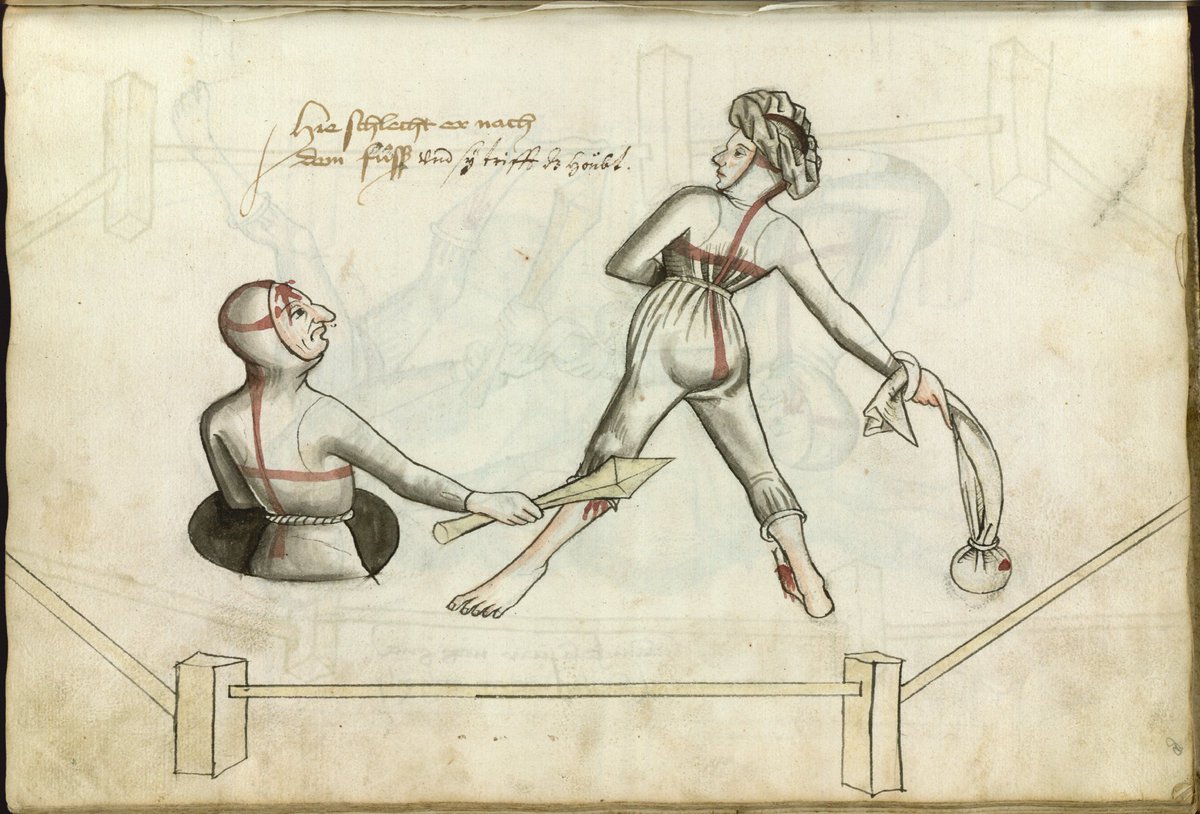 Hie schlecht er nach
dem fůſß vnd sÿ trifft dz Hoübt.